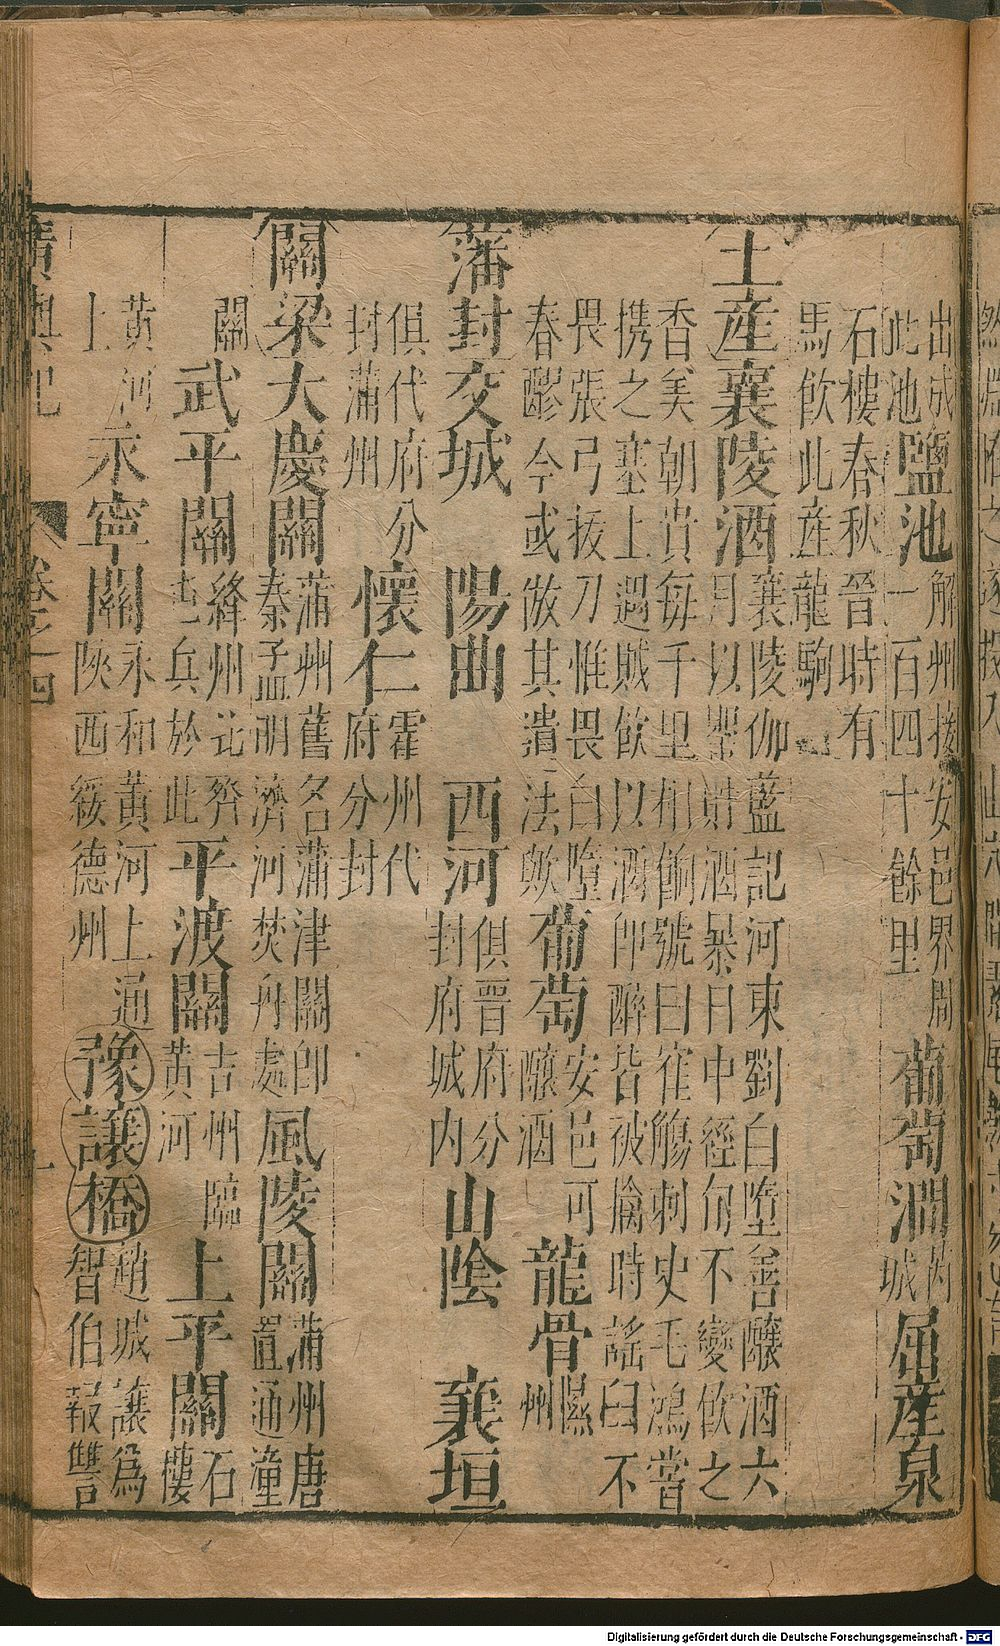 出成
此池
鹽池
解州接安邑界周
一百四十餘里
葡萄澗
芮
城
屈産泉
石樓春秋晉時有
馬飲此産龍駒
土産襄陵酒
襄陵伽藍記河東劉白墮善釀酒六
月以罌貯酒暴日中經旬不變飲之
香美朝貴每千里相餉號曰崔觴刺史毛鴻嘗
携之塞上遇賊飲以酒即醉皆被擒時謠曰不
畏張弓拔刀惟畏白墮
春醪今或倣其遺法歟
葡萄
安邑可
釀酒
龍骨
隰
州
藩封交城 陽曲 西河
俱晋府分
封府城内
山陰 襄垣
俱代府分
封蒲州
懷仁
霍州代
府分封
關梁大慶關
蒲州舊名蒲津關即
秦孟明濟河焚舟處
風陵關
蒲州唐
置通潼
關
武平關
絳州北齊
屯兵於此
平渡關
吉州臨
黄河
上平關
石
樓
黄河
上
永寧關
永和黄河上通
陝西綏德州
豫讓橋
趙城讓爲
智伯報讐
廣輿記 卷之四
Digitalisierung gefördert durch die Deutsche Forschungsgemeinschaft - DFG